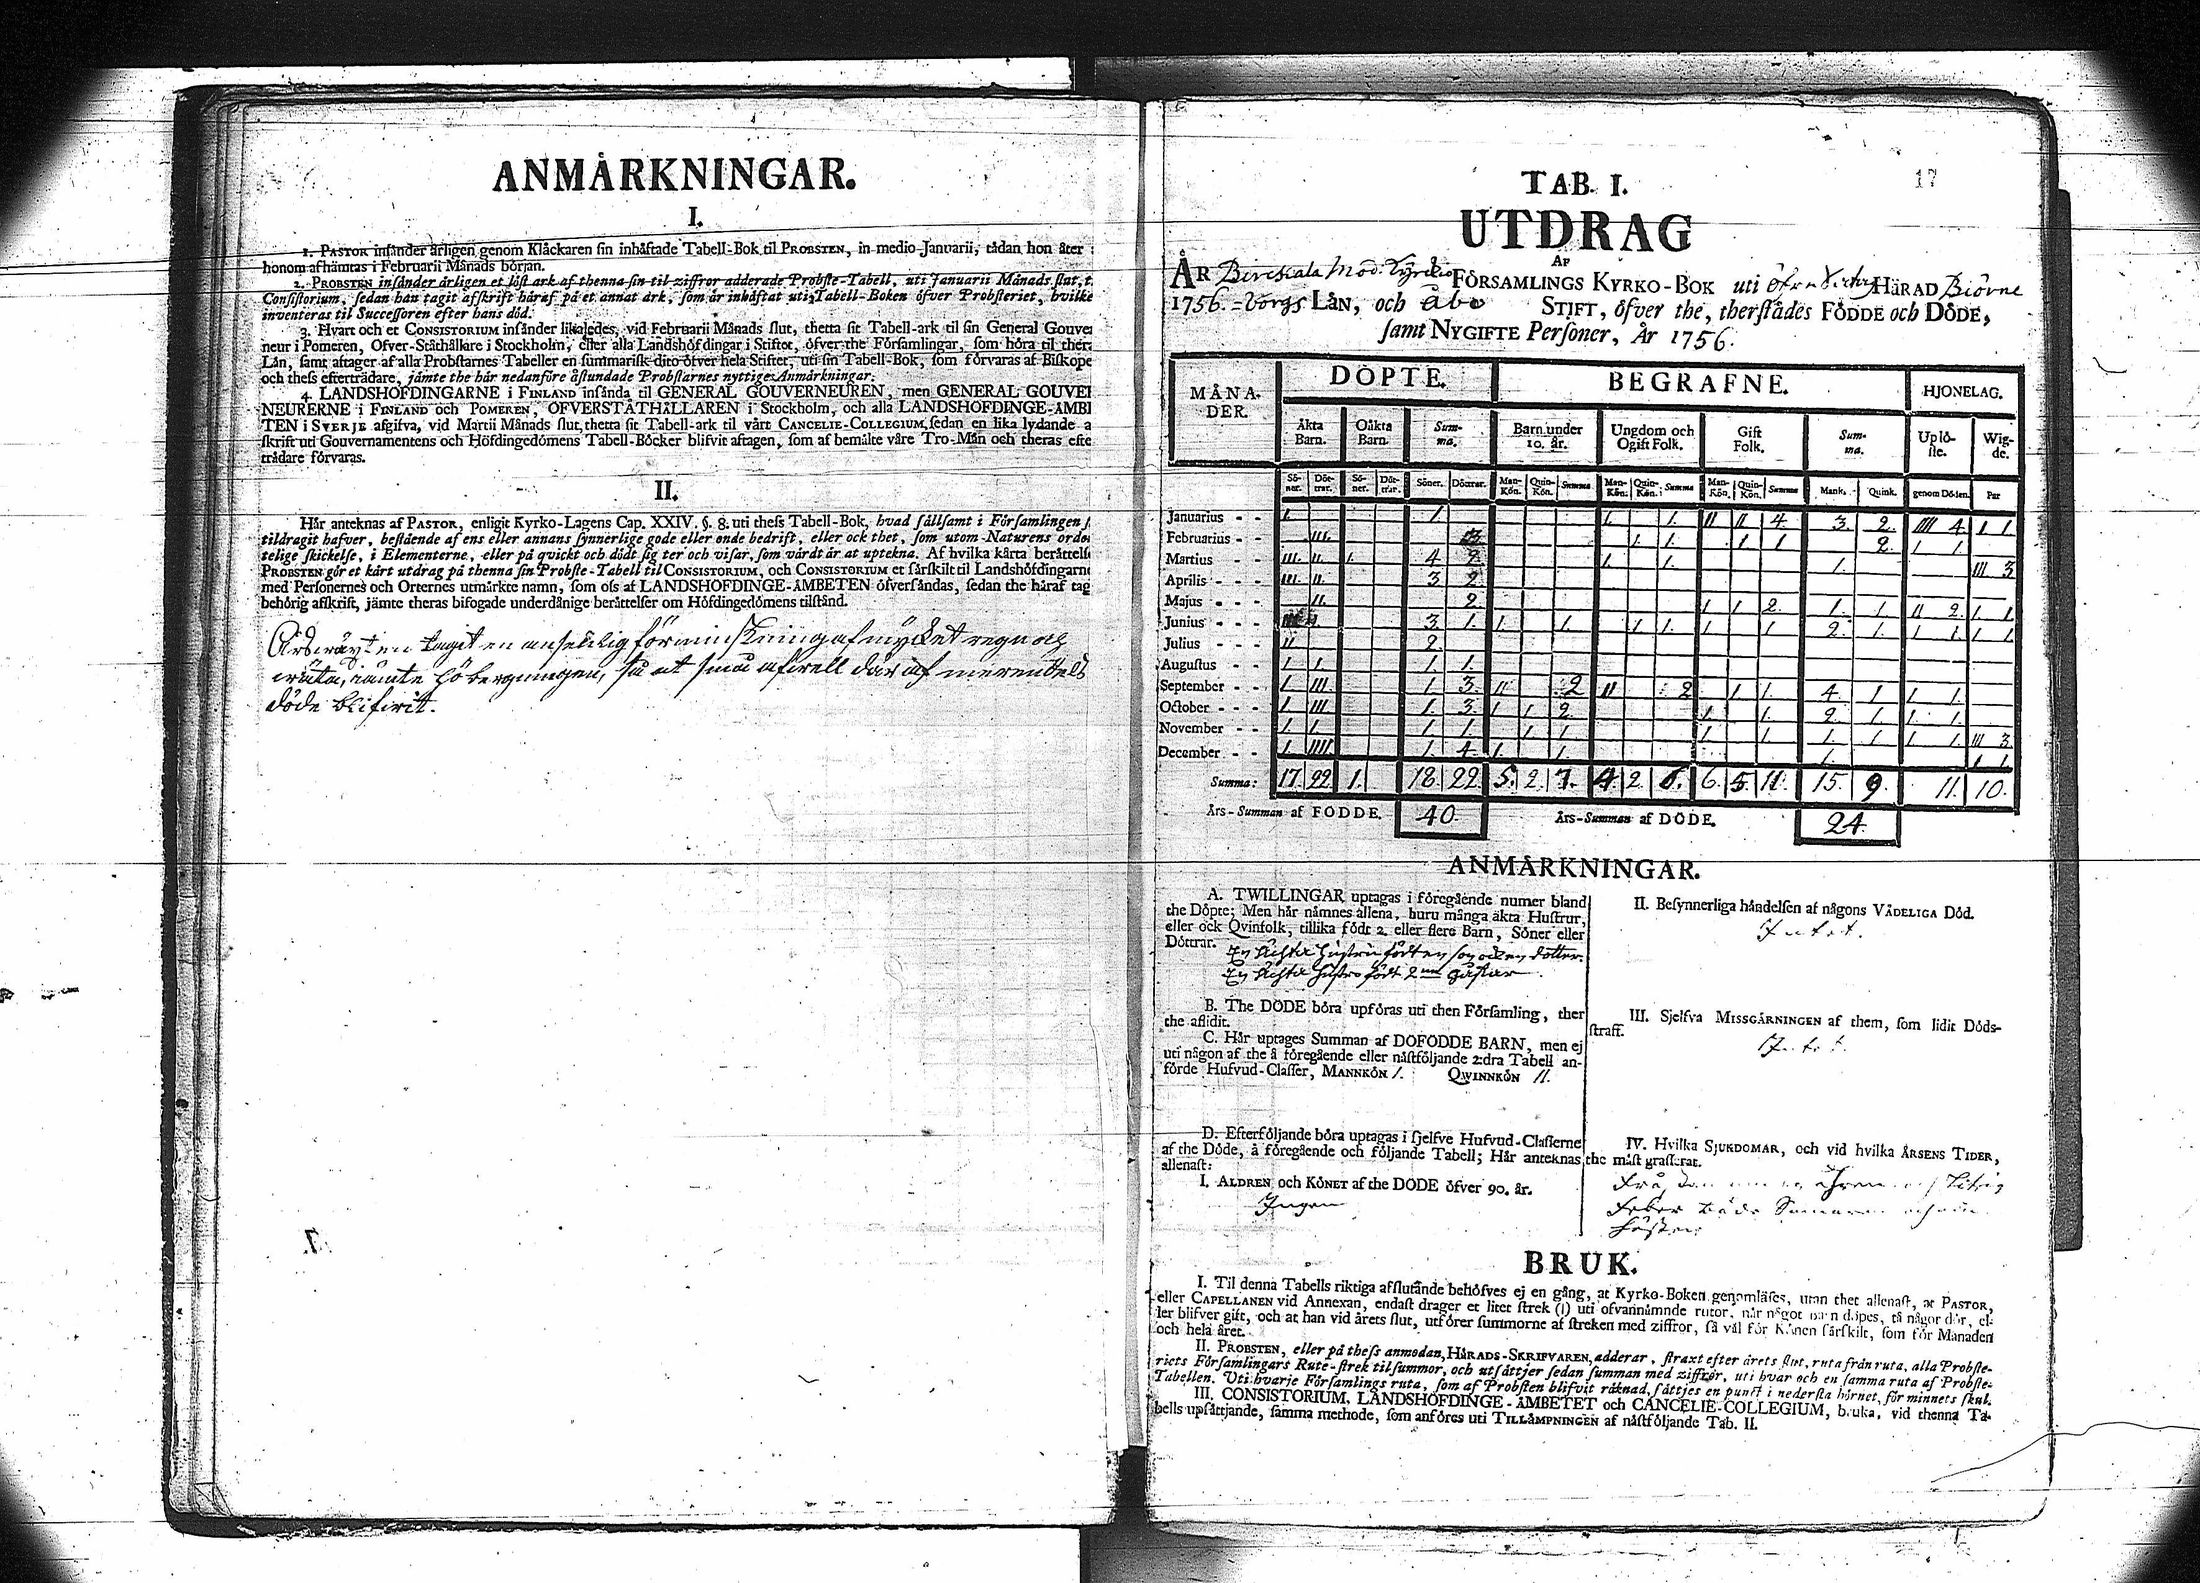 ANMÅRKNINGAR.
I.
1. PASTOR insånder årligen genom Klåckaren sin inhåftade Tabell-Bok til PROBSTEN, in medio Januarii, tådan hon åter
honom afhåmtas i Februarii Månads början.
2. PROBSTEN insånder årligen et löst ark af thenna sin til ziffror adderade Probste-Tabell, uti Januarii Månads slut, t.
Consistorium, sedan han tagit afskrift håraf på et annat ark, som år inhåftat uti Tabell-Boken öfver Probsteriet, hvilke
inventeras til Successoren efter hans död.
3. Hvart och et CONSISTORIUM insånder likaledes, vid Februarii Månads slut, thetta sit Tabell-ark til sin General Gouver
neur i Pomeren, Ofver-Ståthållare i Stockholm, eller alla Landshöfdingar i Stiftet, öfver the Församlingar, som höra til thera
Lån, samt aftager af alla Probstarnes Tabeller en summarisk dito öfver hela Stiftet, uti sin Tabell-Bok, som förvaras af Biskope
och thess efterträdare, jämte the här nedanföre åstundade Probstarnes nyttige Anmårkningar.
4. LANDSHÖFDINGARNE i FINLAND insånda til GENERAL GOUVERNEUREN, men GENERAL GOUVER
NEURERNE i FINLAND och POMEREN, ÖFVERSTÅTHÅLLAREN i Stockholm, och alla LANDSHÖFDINGE-ÅMBE
TEN i SVERJE afgifva, vid Martii Månads slut, thetta sit Tabell-ark til vårt CANCELIE-COLLEGIUM, sedan en lika lydande a
skrift uti Gouvernamentens och Höfdingedömens Tabell-Böcker blifvit aftagen, som af bemålte våre Tro-Mån och theras efte
trådare förvaras.
II.
Hår anteknas af PASTOR, enligit Kyrko-Lagens Cap. XXIV. §. 8. uti thess Tabell-Bok, hvad sållsamt i Församlingen
tildragit hafver, bestående af ens eller annans synnerlige gode eller onde bedrift, eller ock thet, som utom Naturens orde
telige skickelse, i Elementerne, eller på qvickt och dödt sig ter och visar, som vårdt år at uptekna. Af hvilka kårta beråttels
PROBSTEN gör et kårt utdrag på thenna sin Probste-Tabell til CONSISTORIUM, och CONSISTORIUM et sårskilt til Landshöfdingarne
med Personernes och Orternes utmårkte namn, som oss af LANDSHÖFDINGE-ÅMBETEN öfversåndas, sedan the håraf tag
behörig afskrift, jämte theras bifogade underdånige beråttelser om Höfdingedömens tilstånd.
Årsväxten tagit en ansenlig förminskning af mycket regn och
wäta, jämte höbergningen, så at små
döde blifwit.
17
TAB. I.
UTDRAG
AF
ÅR Mod. Kyrckio FÖRSAMLINGS KYRKO-BOK uti HÅRAD Biörne
1756. -borgs LÅN, och Åbo STIFT, öfver the, therstådes FÖDDE och DÖDE,
samt NYGIFTE Personer, År 1756.
MÅNA-DER. DÖPTE. BEGRAFNE. HJONELAG.
Åkta Barn. Oåkta Barn. Sum-ma. Barn under 10. år. Ungdom och Ogift Folk. Gift Folk. Sum-ma. Uplö-ste. Wig-de.
Sö-ner. Döt-trar. Sö-ner. Döt-trar. Söner. Döttrar. Man-Kön. Quin-Kön. Summa Man-Kön. Quin-Kön. Summa Man-Kön. Quin-Kön. Summa Mank. Quink. genom Döden. Par
Januarius - - 1. 1. 1. 1. II II 4. 3. 2. IIII 4. 1 1
Februarius - - III. 3. 1 1. 1 1 2. 1 1.
Martius - - III. II. 1. 4 2. 1. 1. 1. III 3
Aprilis - - III. II. 3 2.
Majus - - II. 2. 1 1 2. 1. 1. II 2. 1. 1
Junius - - 3. 1. 1. 1. 1 1. 1 1 2. 1. 1 1. 1 1
Julius - - II. 2.
Augustus - - 1. 1. 1. 1.
September - - 1 III. 1. 3. II 2 II 2 1 1. 4. 1. 1 1.
October - - 1 III. 1. 3. 1 1 2. 1 1. 2. 1. 1 1.
November - - 1. 1. 1. 1. 1 1. 1 1 1. 1. 1 1. III 3
December - - 1 IIII 1. 4. 1. 1. 1. 1 1
Summa: 17. 22. 1. 18. 22. 5. 2. 7. 4. 2. 6. 6. 5. 11. 15. 9. 11. 10.
Års-Summan af FÖDDE. 40. Års-Summan af DÖDE. 24.
ANMÅRKNINGAR.
A. TWILLINGAR uptagas i föregående numer bland
the Döpte; Men hår nåmnes allena, huru många åkta Hustrur,
eller ock Qvinfolk, tillika födt 2. eller flere Barn, Söner eller
Döttrar. En ächta hustru födt en son och en dotter.
En ächta hustro födt 2 gåssar.
B. The DÖDE böra upföras uti then Församling, ther
the aflidit.
C. Hår uptages Summan af DÖFÖDDE BARN, men ej
uti någon af the å föregående eller nåstföljande 2:dra Tabell an-
förde Hufvud-Classer, MANNKÖN 1. QWINNKÖN II.
D. Efterföljande böra uptagas i sjelfve Hufvud-Classerne
af the Döde, å föregående och följande Tabell; Hår anteknas
allenast:
I. ÅLDREN och KÖNET af the DÖDE öfver 90. år.
Ingen
II. Besynnerliga håndelsen af någons VÅDELIGA Död.
Intet.
III. Sjelfva MISSGÅRNINGEN af them, som lidit Döds-
straff.
Intet.
IV. Hvilka SJUKDOMAR, och vid hvilka ÅRSENS TIDER,
the måst grasserat.
Hitzig
Feber både Sommaren och om
hösten
BRUK.
I. Til denna Tabells riktiga afslutånde behöfves ej en gång, at Kyrko-Boken genomlåses, utan thet allenast, at PASTOR,
eller CAPELLANEN vid Annexan, endast drager et litet strek (I) uti ofvannåmnde rutor, når något barn döpes, tå någor dör, el-
ler blifver gift, och at han vid årets slut, utförer summorne af streken med ziffror, så vål för Könen sårskilt, som för Månaden
och hela året.
II. PROBSTEN, eller på thess anmodan, HÅRADS-SKRIFVAREN, adderar, straxt efter årets slut, ruta från ruta, alla Probste-
riets Församlingars Rute-strek til summor, och utsåttjer sedan summan med ziffror, uti hvar och en samma ruta af Probste-
Tabellen. Uti hvarje Församlings ruta, som af Probsten blifvit råknad, såttjes en punct i nedersta hörnet, för minnets skul.
III. CONSISTORIUM, LANDSHÖFDINGE-ÅMBETET och CANCELIE-COLLEGIUM, bruka, vid thenna Ta-
bells upsåttjande, samma methode, som anföres uti TILLÅMPNINGEN af nåstföljande Tab. II.